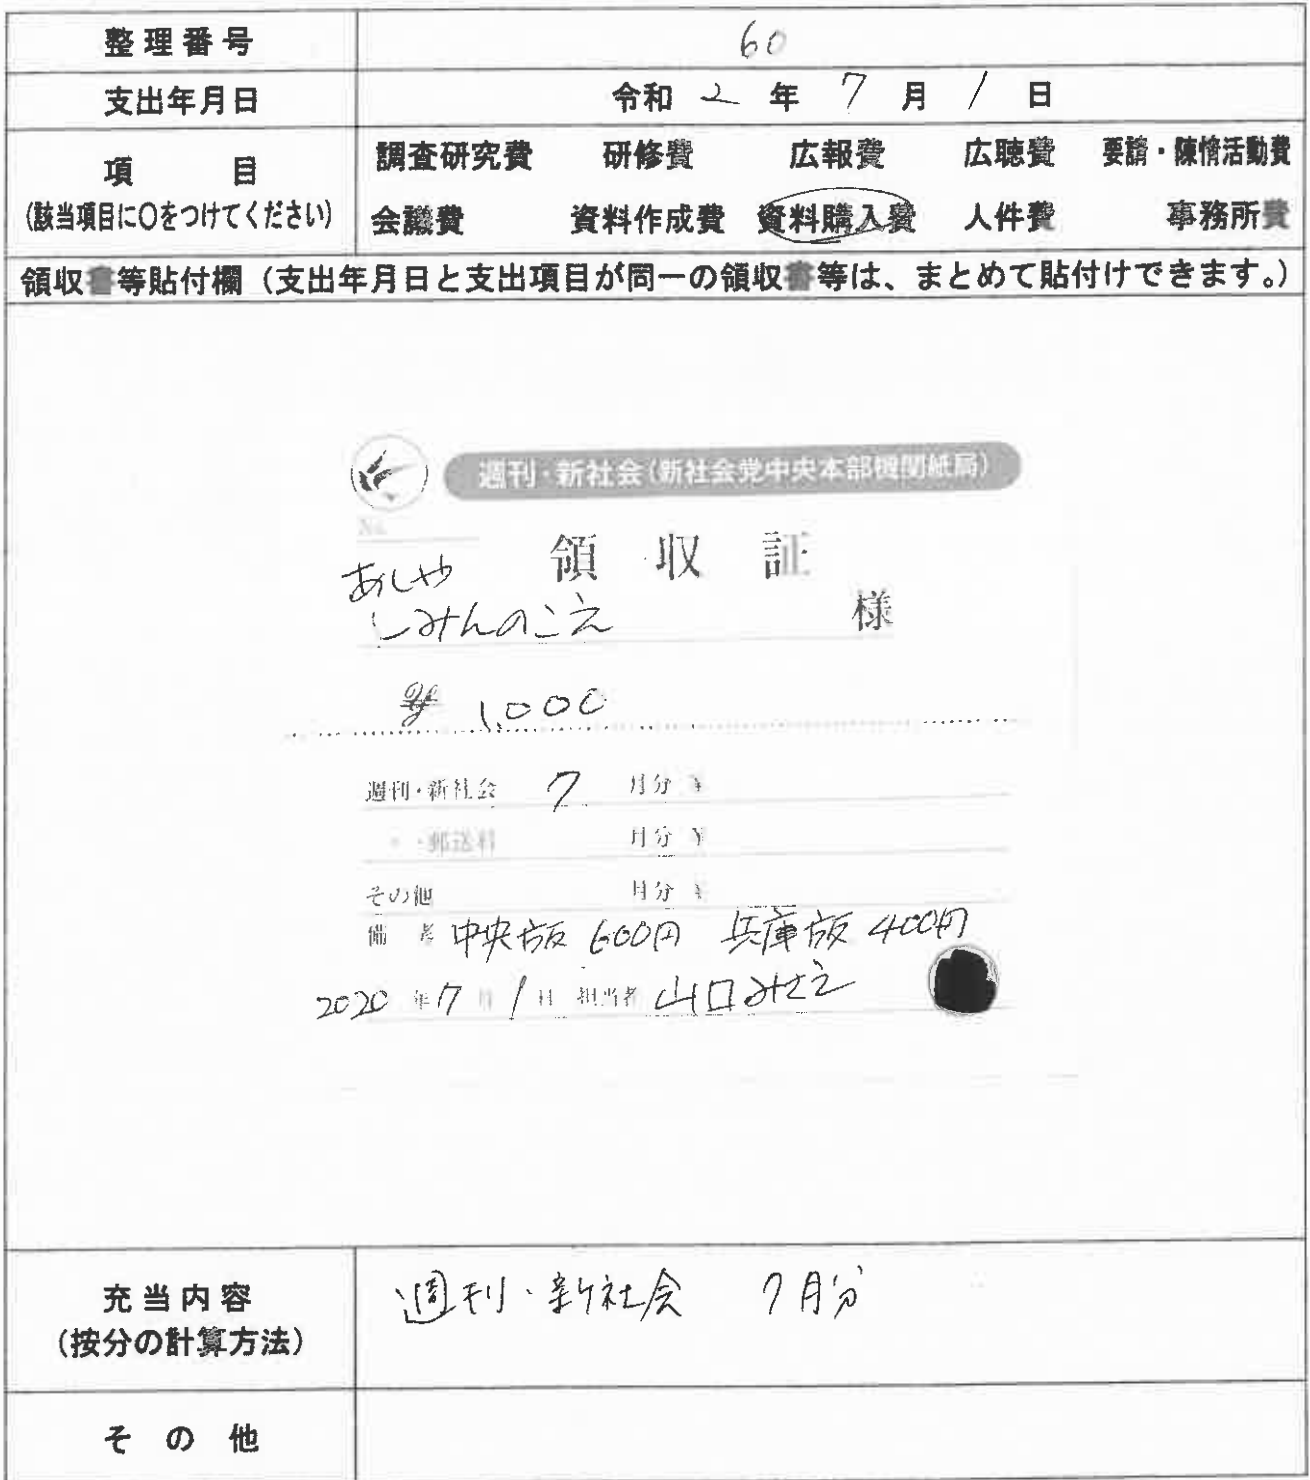 整理番号 60
支出年月日 令和 2 年 7 月 1 日
項目 調査研究費 研修費 広報費 広聴費 要請・陳情活動費
(該当項目に○をつけてください) 会議費 資料作成費 資料購入費 人件費 事務所費
領収書等貼付欄（支出年月日と支出項目が同一の領収書等は、まとめて貼付けできます。）
週刊・新社会(新社会党中央本部機関紙局)
No.
領収証
あしや
しみんのこえ 様
¥ 1,000
週刊・新社会 7 月分 ¥
〃・郵送料 月分 ¥
その他 月分 ¥
備考 中央版 600円 兵庫版 400円
2020 年 7 月 1 日 担当者 山口みさえ
充当内容 週刊・新社会 7月分
(按分の計算方法)
その他